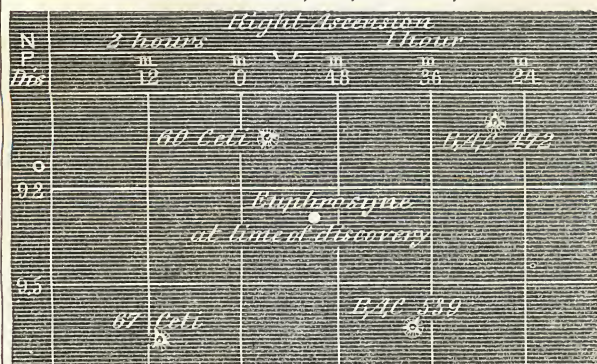 Right Ascension
N
P.
Dis
2 hours
1 hour
m
12
m
0
m
48
m
36
m
24
60 Ceti
B,A,C 472
o
92
Euphrosyne
at time of discovery
95
67 Ceti
B,A,C 539